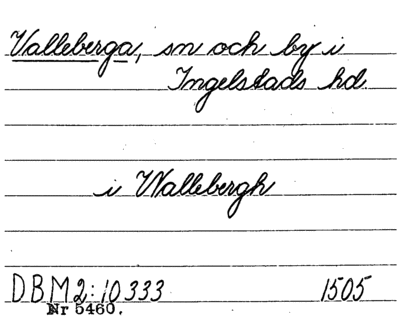 Valleberga, sn och by i
Ingelstads hd.
i Wallebergh
DBM2:10333 1505
Nr 5460.